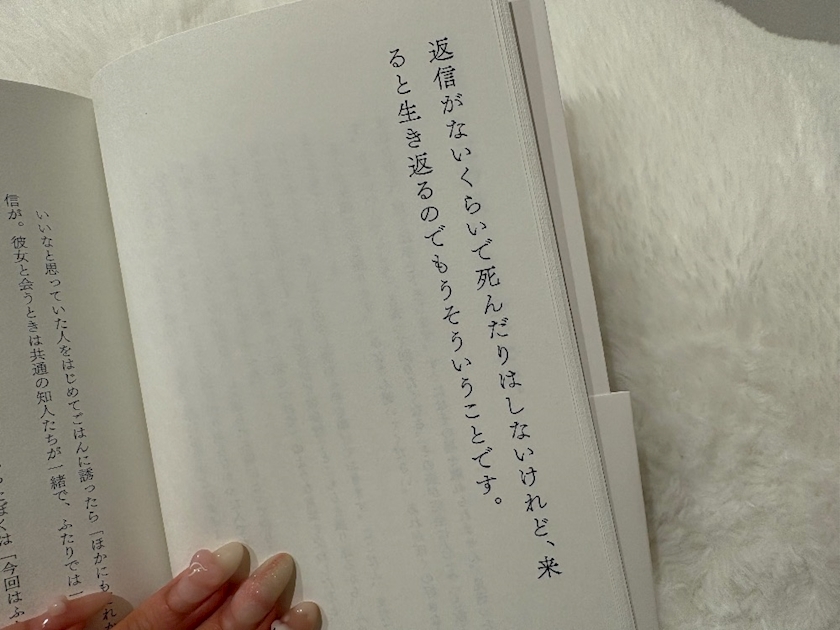 返信がないくらいで死んだりはしないけれど、来
ると生き返るのでもうそういうことです。
いいなと思っていた人をはじめてごはんに誘ったら「ほかにも
信が。彼女と会うときは共通の知人たちが一緒で、ふたりでは一
くは「今回はふ